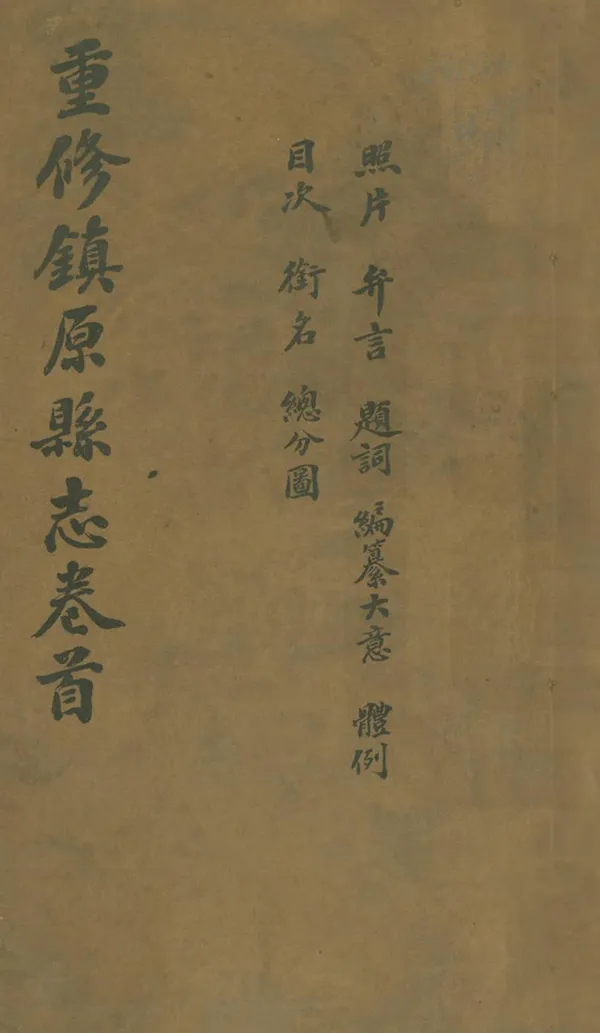 照片 弁言 題詞 編纂大意 體例
目次 銜名 總分圖
重修鎮原縣志卷首